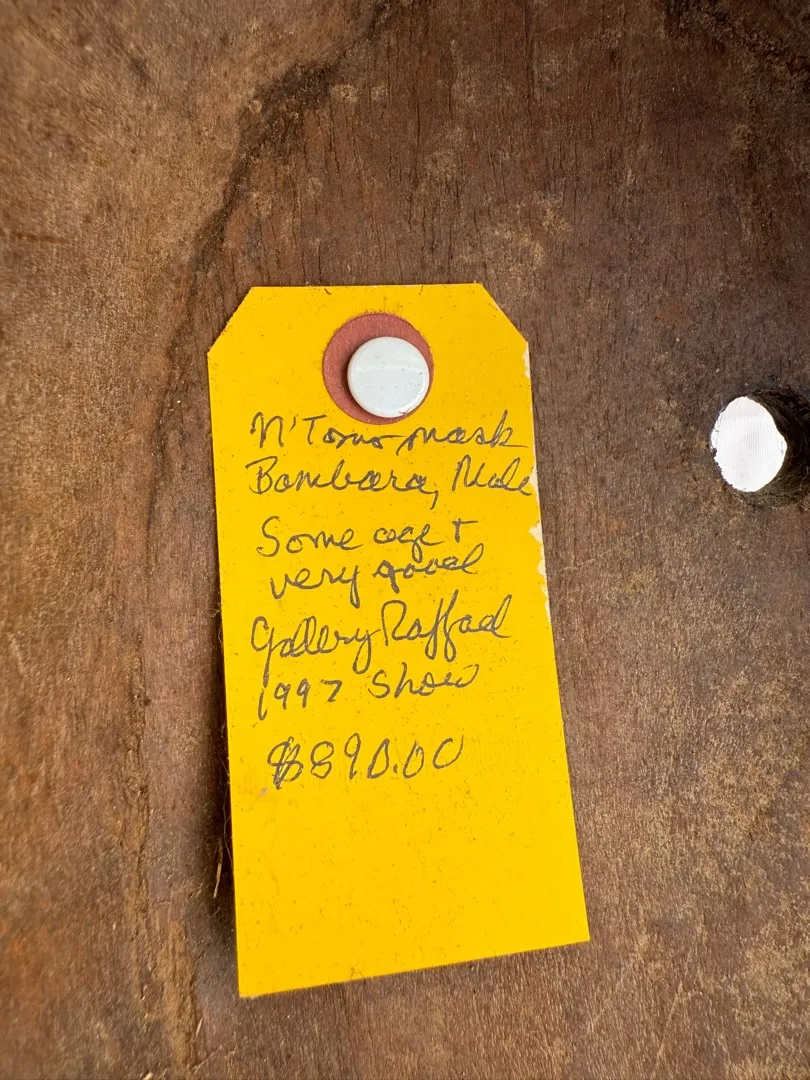 N'Tomo mask
Bambara, Male
Some age +
very good
Gallery Raffael
1997 show
$890.00